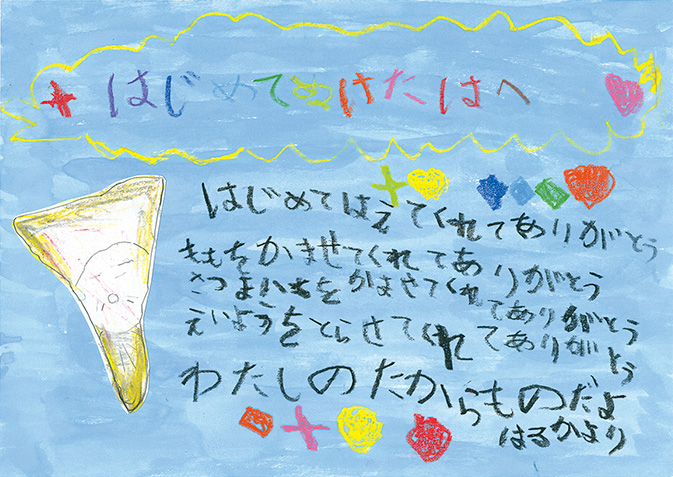 はじめてぬけたはへ
はじめてはえてくれてありがとう
ももをかませてくれてありがとう
さつまいもをかませてくれてありがとう
えいようをとらせてくれてありがとう
わたしのたからものだよ
はるかより